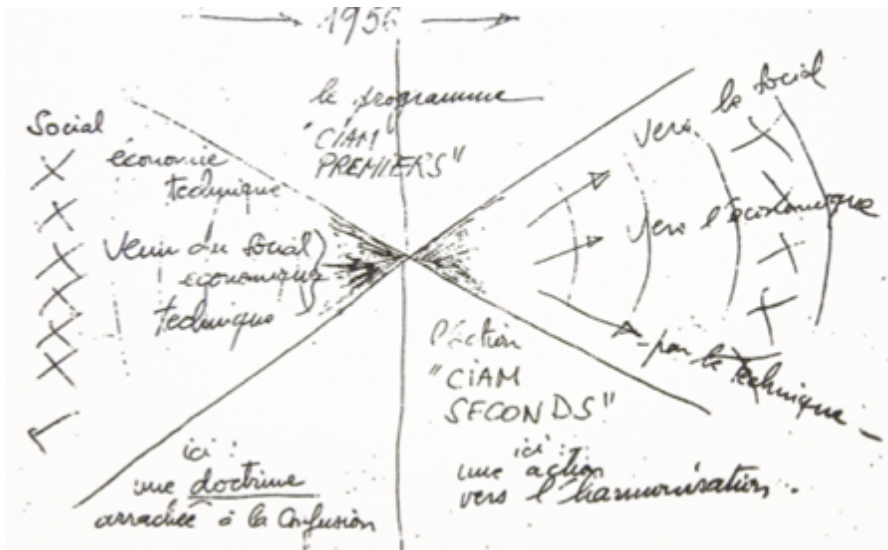 1956
le programme
"CIAM
PREMIERS"
Social
économie
technique
Venir du Social
economique
technique
vers le Social
vers l'économique
-par la technique-
l'action
"CIAM
SECONDS"
ici :
une doctrine
arrachée à la Confusion
ici :
une action
vers l'harmonisation.